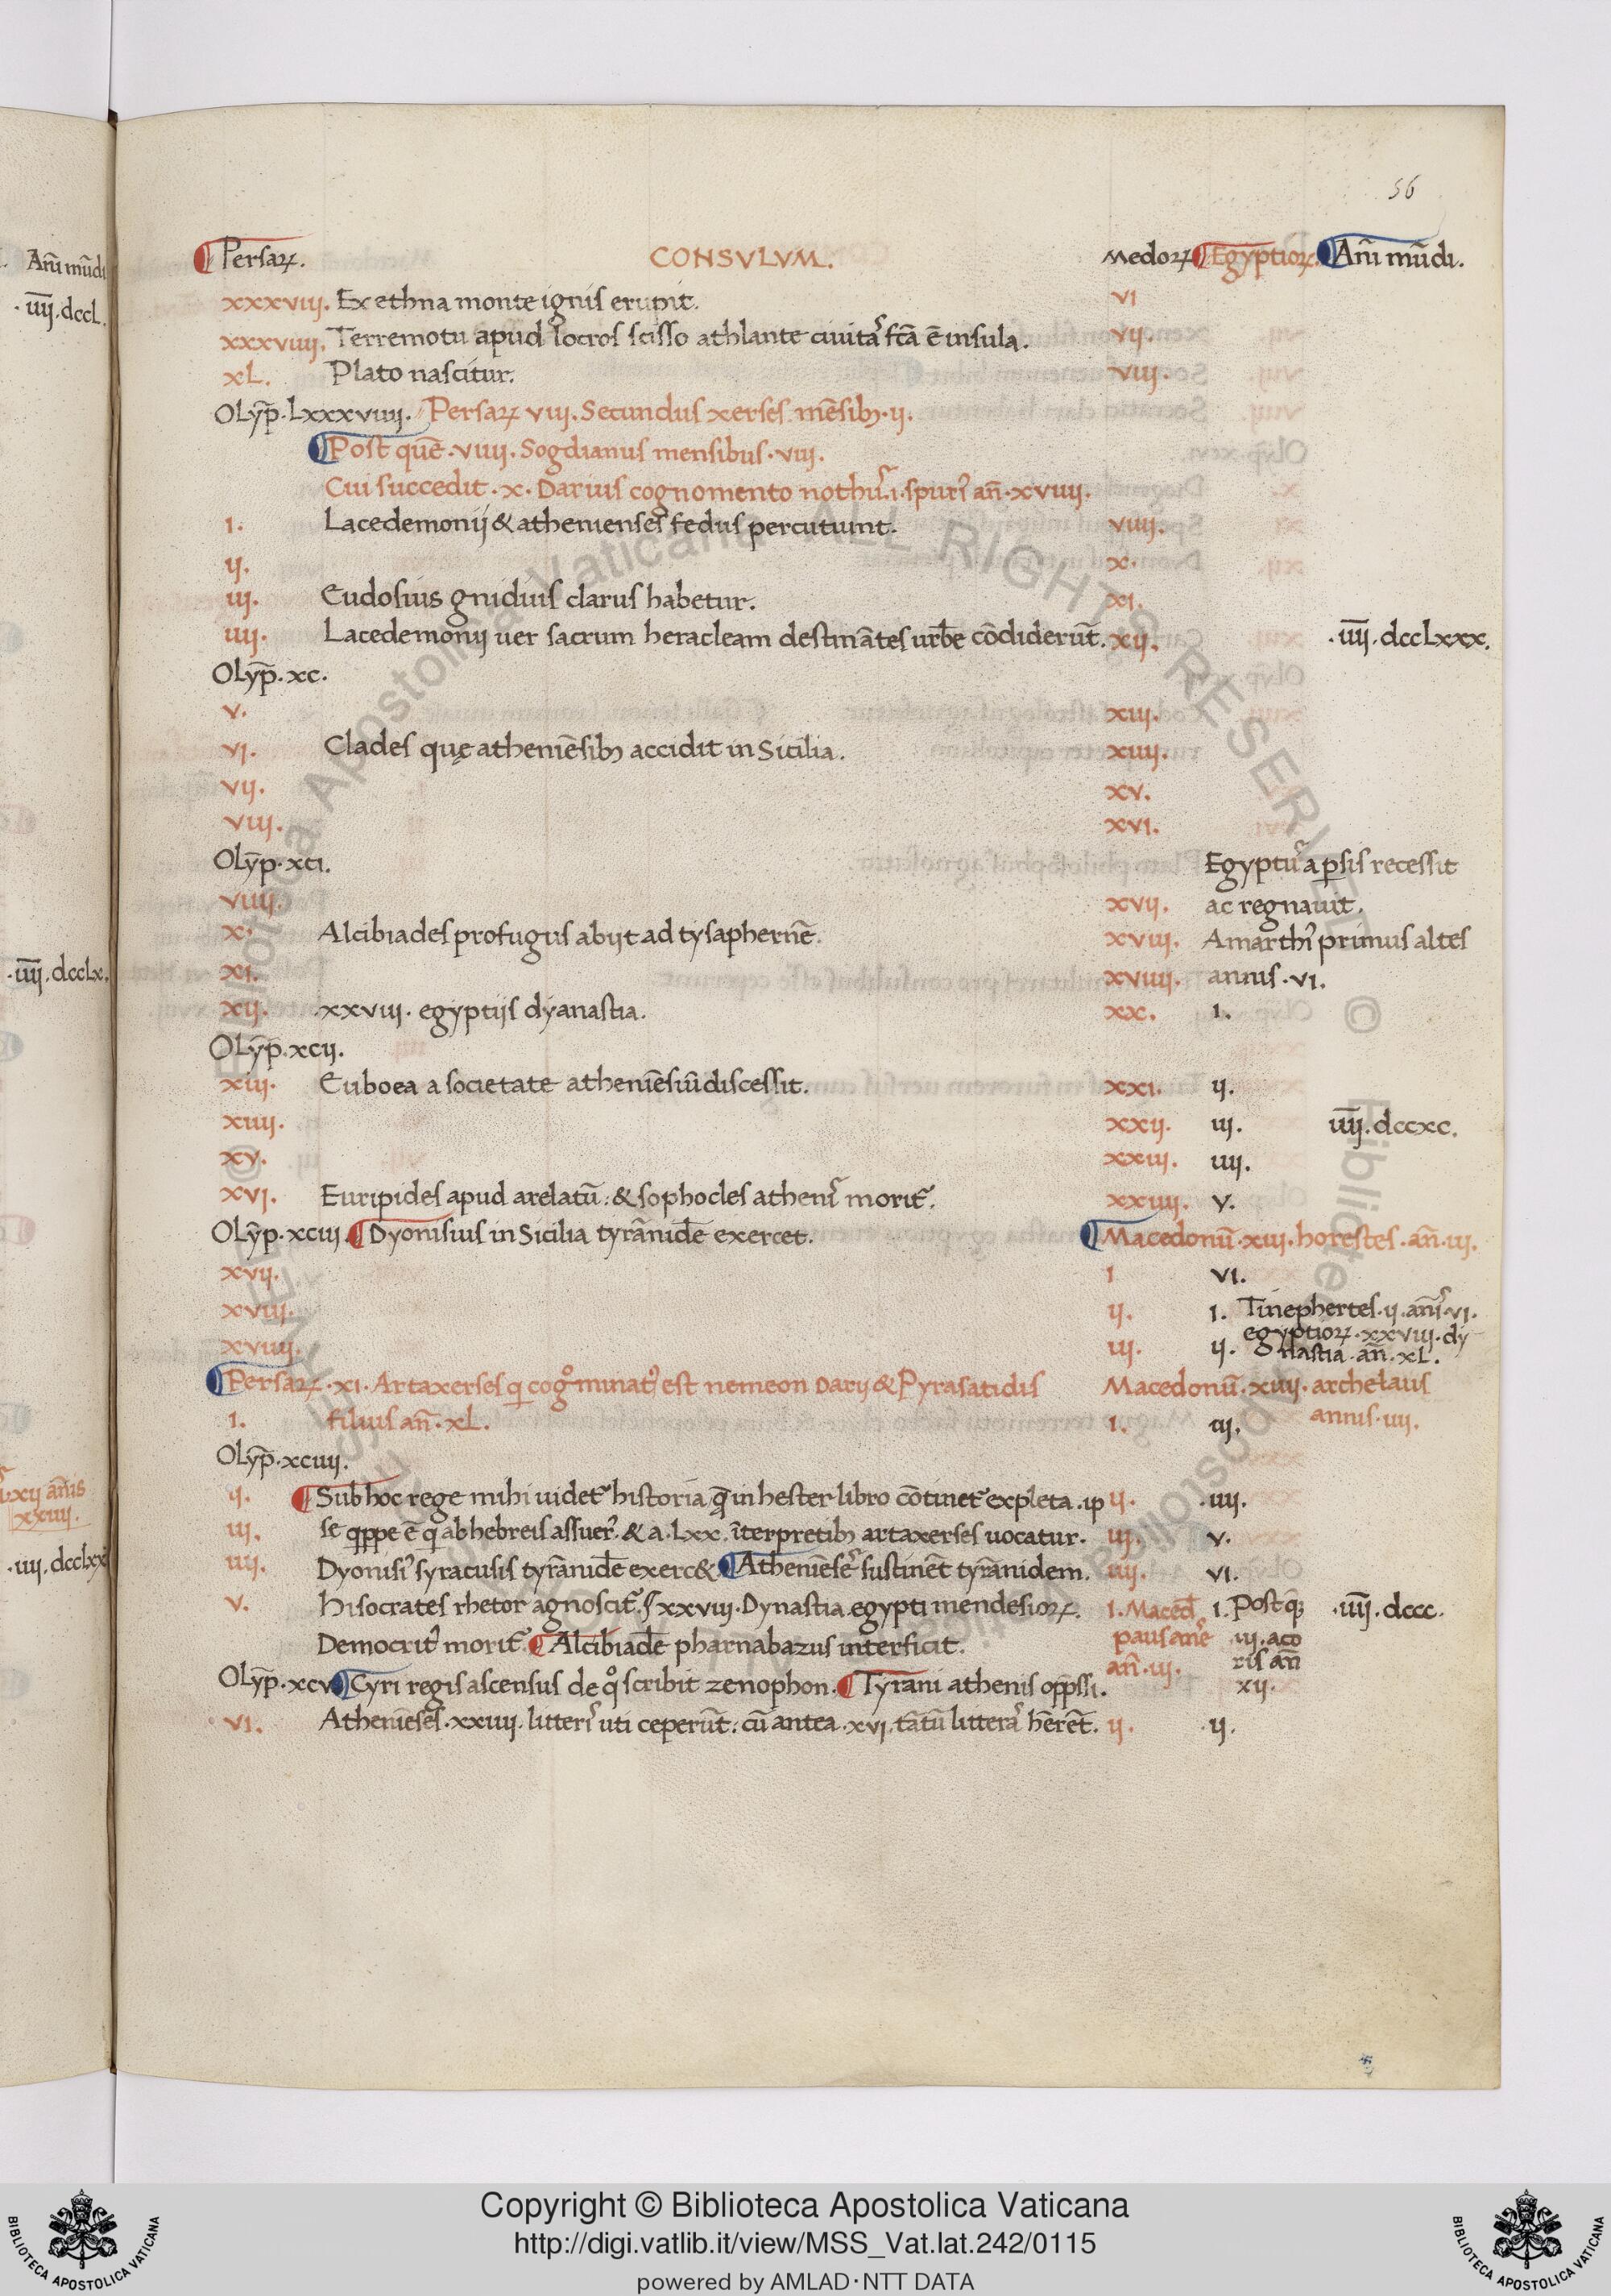 56
Persaꝝ. CONSVLVM. Medoꝝ Egyptioꝝ. Añi mũdi.
xxxviii. Ex ethna monte ignis erupit. vi
xxxviiii. Terremotu apud locros scisso athlante ciuitaˢ fcã ẽ insula. vii.
xL. Plato nascitur. viii.
OLyp̃. Lxxxviiii. Persaꝝ viii. Secundus xerses mẽsibꝫ. ii.
Post quẽ. viiii. Sogdianus mensibus. viii.
Cui succedit. x. Darius cognomento nothuˢ. i. spuriˢ añ. xviiii.
i. Lacedemonij & athenienses fedus percutiunt. viiii.
ij. x.
iij. Eudosius gnidius clarus habetur. xi.
iiij. Lacedemonij uer sacrum heracleam destinãtes urbẽ cõdiderũt. xij. .iiij. dccLxxx.
OLyp̃. xc.
v. xiii.
vi. Clades quę atheniẽsibꝫ accidit in Sicilia. xiiii.
vij. xv.
viii. xvi.
OLyp̃. xci. Egyptuˢ a ꝑsis recessit
viiii. xvii. ac regnauit.
x. Alcibiades profugus abijt ad tysaphernẽ. xviii. Amarthiˢ primus altes
xi. xviiii. annis. vi.
xij. .xxviii. egyptijs dyanastia. xx. i.
OLyp̃. xcij.
xiij. Euboea a societate atheniẽsiũ discessit. xxi. ij.
xiiij. xxij. iij. iiij. dccxc.
xv. xxiij. iiij.
xvi. Euripides apud arelatũ: & sophocles atheniˢ morit̃. xxiiij. v.
OLyp̃. xciij. Dyonisius in Sicilia tyrãnidẽ exercet. Macedonũ. xiij. horestes. añ. iij.
xvij. i vi.
xviij. ij. i. Tinephertes. ij. añiˢ. vi.
egyptioꝝ. xxviij. dy
xviiij. iij. ij. nastia. añ. xL.
Persaꝝ. xi. Artaxerses q̃ cogͦminatꝰ est nemeon Darij & Pyrasatidis Macedonũ. xiiij. archelaus
i. filius añ. xL. i. iij. annis. iiij.
OLyp̃. xciiij.
ij. Sub hoc rege mihi uidet̃ historia q̃ in hester libro cõtinet̃ expleta. ip ij. .iiij.
iij. se q̃ppe ẽ q̃ ab hebreis assuerꝰ. & a. Lxx. ĩterpretibꝫ artaxerses uocatur. iij. v.
iiij. Dyonisiꝰ syracusis tyrãnidẽ exerc&. Atheniẽseˢ sustinẽt tyrãnidem. iiij. vi.
v. Hisocrates rhetor agnoscit̃. xxviij. Dynastia egypti mendesioꝝ. i. Maced̃ i. Post q̃ .iiij. dccc.
Democritꝰ morit̃. Alcibiadẽ pharnabazus interficit. pausaneˢ iij. aco
añ. iij. ris añ
OLyp̃. xcv Cyri regis ascensus de qͦ scribit zenophon. Tyrani athenis opp̃ssi. xij.
vi. Atheniẽses. xxiiij. litteriˢ uti ceperũt: cũ antea. xvi. tãtũ litteraˢ hẽrẽt. ij. .ij.
Añi mũdi
.iiij. dccL.
.iiij. dccLx.
Lxij añis
xxiiij.
.iiij. dccLxx
Copyright © Biblioteca Apostolica Vaticana
http://digi.vatlib.it/view/MSS_Vat.lat.242/0115
powered by AMLAD·NTT DATA
BIBLIOTECA APOSTOLICA VATICANA
BIBLIOTECA APOSTOLICA VATICANA